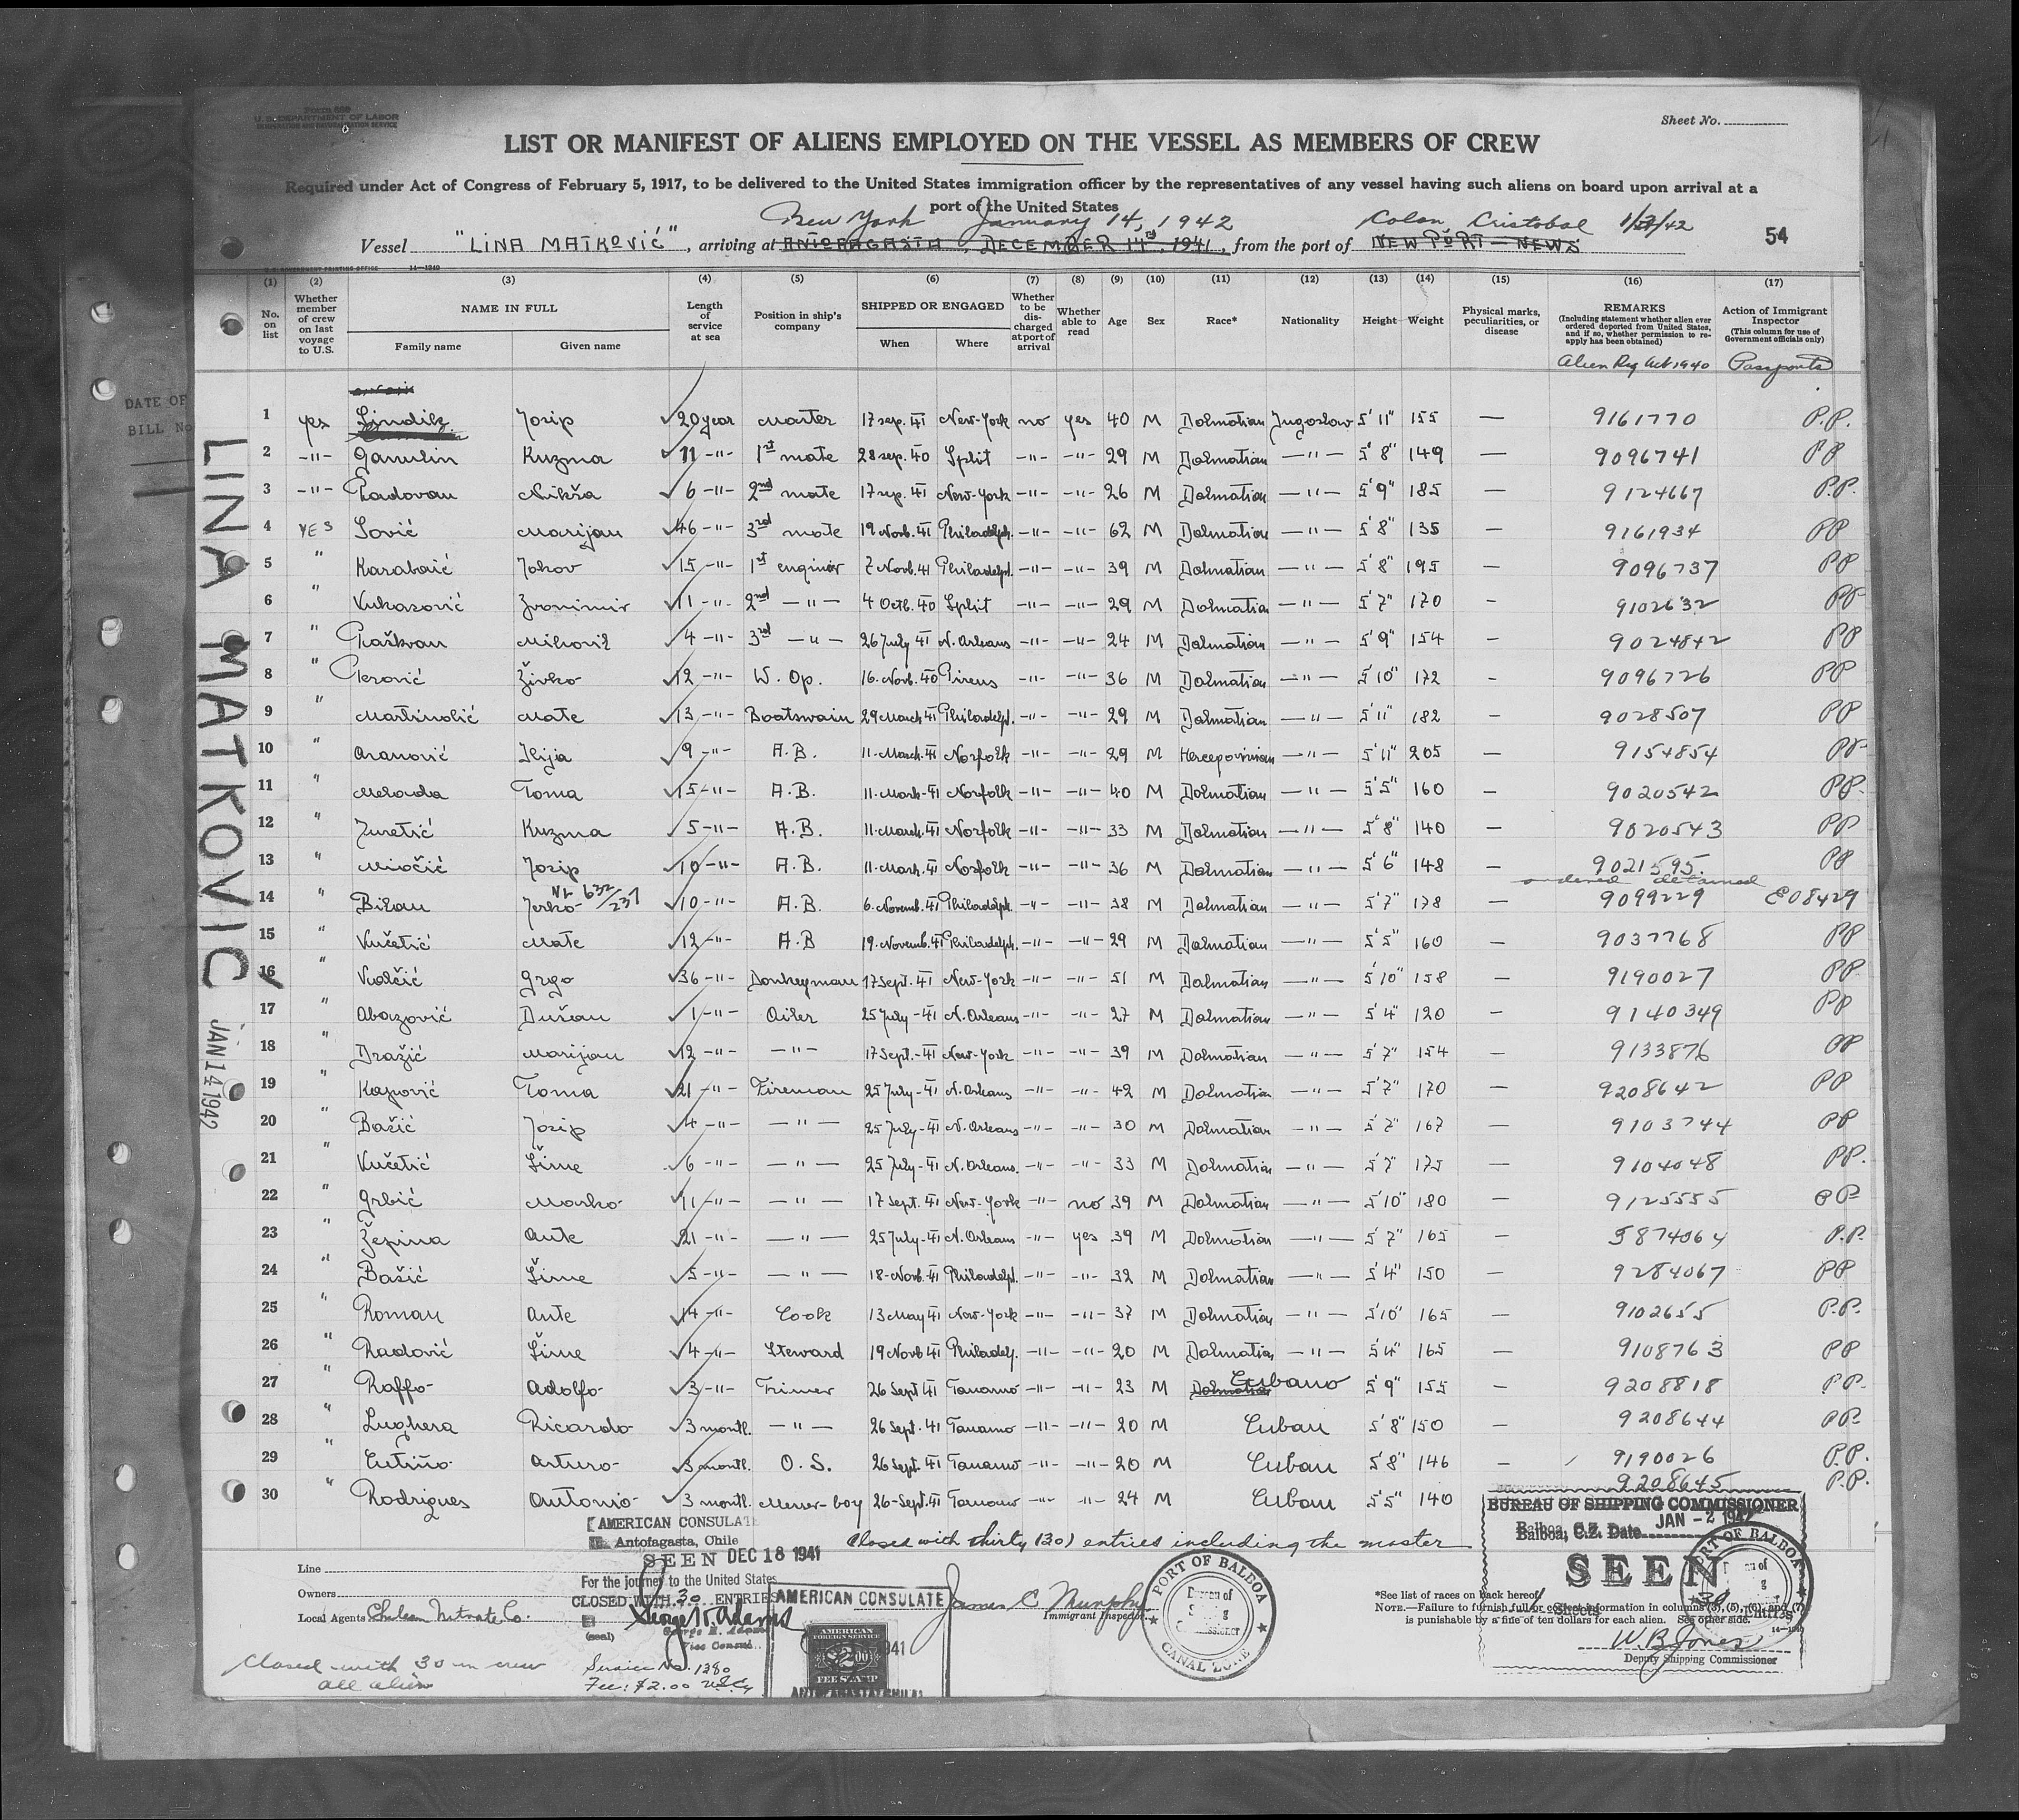 Form 680
U. S. DEPARTMENT OF LABOR
IMMIGRATION AND NATURALIZATION SERVICE
Sheet No.
LIST OR MANIFEST OF ALIENS EMPLOYED ON THE VESSEL AS MEMBERS OF CREW
Required under Act of Congress of February 5, 1917, to be delivered to the United States immigration officer by the representatives of any vessel having such aliens on board upon arrival at a
port of the United States
New York January 14, 1942 Colon Cristobal
Vessel "LINA MATKOVIĆ", arriving at ANTOFAGASTA, DECEMBER 14th, 1941, from the port of NEWPORT-NEWS 54
U. S. GOVERNMENT PRINTING OFFICE 14-1240
(1) (2) (3) (4) (5) (6) (7) (8) (9) (10) (11) (12) (13) (14) (15) (16) (17)
No. on list Whether member of crew on last voyage to U.S. NAME IN FULL Family name Given name Length of service at sea Position in ship's company SHIPPED OR ENGAGED When Where Whether to be discharged at port of arrival Whether able to read Age Sex Race* Nationality Height Weight Physical marks, peculiarities, or disease REMARKS (Including statement whether alien ever ordered deported from United States, and if so, whether permission to reapply has been obtained) Action of Immigrant Inspector (This column for use of Government officials only)
Alien Reg Act 1940 Passports
1 yes Josip 20 year Master 17 sep. 41 New-York no yes 40 M Dalmatian Jugoslav 5' 11" 155 — 9161770 P.P.
2 -"- Ganulin Kuzma 11 -"- 1st mate 28 sep. 40 Split -"- -"- 29 M Dalmatian -"- 5' 8" 149 — 9096741 PP
3 -"- Radovan Nikša 6 -"- 2nd mate 17 sep. 41 New-York -"- -"- 26 M Dalmatian -"- 5' 9" 185 — 9124667 P.P.
4 YES Sović Marijan 46 -"- 3rd mate 19 Novb. 41 Philadelph. -"- -"- 62 M Dalmatian -"- 5' 8" 135 — 9161934 PP
5 " Karabaić Jakov 15 -"- 1st enginér 7 Novb. 41 Philadelph. -"- -"- 39 M Dalmatian -"- 5' 8" 195 — 9096737 PP
6 " Vukasović Zvonimir 11 -"- 2nd -"- 4 Octb. 40 Split -"- -"- 29 M Dalmatian -"- 5' 7" 170 - 9102632 PP
7 " Raškvan Mihovil 4 -"- 3rd -"- 26 July 41 N. Orleans -"- -"- 24 M Dalmatian -"- 5' 9" 154 - 9024842 PP
8 " Perović Živko 12 -"- W. Op. 16. Novb. 40 Pireus -"- -"- 36 M Dalmatian -"- 5' 10" 172 - 9096726 PP
9 " Martinolić Mate 13 -"- Boatswain 29 March 41 Philadelph. -"- -"- 29 M Dalmatian -"- 5' 11" 182 - 9028507 PP
10 " Aranović Ilija 9 -"- A.B. 11. March. 41 Norfolk -"- -"- 29 M Hercegovinian -"- 5' 11" 205 — 9154854 PP
11 " Toma 15 -"- A.B. 11. March-41 Norfolk -"- -"- 40 M Dalmatian -"- 5' 5" 160 — 9020542 PP.
12 " Juretić Kuzma 5 -"- A.B. 11. March. 41 Norfolk -"- -"- 33 M Dalmatian -"- 5' 8" 140 — 9020543 PP
13 " Miočić Josip 10 -"- A.B. 11. March. 41 Norfolk -"- -"- 36 M Dalmatian -"- 5' 6" 148 — 9021595. PP
ordered detained
14 " Bilan Jerko 10 -"- A.B. 6. Novemb. 41 Philadelph. -"- -"- 38 M Dalmatian -"- 5' 7" 178 — 9099229 E08429
15 " Vučetić Mate 12 -"- A.B 19. Novemb. 41 Philadelph. -"- -"- 29 M Dalmatian -"- 5' 5" 160 — 9037768 PP
16 " Vidčić Grgo 36 -"- Donkeyman 17 Sept. 41 New-York -"- -"- 51 M Dalmatian -"- 5' 10" 158 — 9190027 PP.
17 " Abazović Dušan 1 -"- Oiler 25 July-41 N. Orleans -"- -"- 27 M Dalmatian -"- 5' 4" 120 — 9140349 PP
18 " Dražić Marijan 12 -"- -"- 17 Sept.-41 New-York -"- -"- 39 M Dalmatian -"- 5' 7" 154 — 9133876 PP
19 " Kapović Toma 21 -"- Fireman 25 July-41 N. Orleans -"- -"- 42 M Dalmatian -"- 5' 7" 170 — 9208642 PP
20 " Bašić Josip 4 -"- -"- 25 July-41 N. Orleans -"- -"- 30 M Dalmatian -"- 5' 7" 167 — 9103744 PP
21 " Vučetić Šime 6 -"- -"- 25 July-41 N. Orleans. -"- -"- 33 M Dalmatian -"- 5' 7" 175 — 9104048 PP.
22 " Grbić Marko 11 -"- -"- 17 Sept. 41 New-York -"- no 39 M Dalmatian -"- 5' 10" 180 — 9125555 PP
23 " Žepina Ante 21 -"- -"- 25 July-41 N. Orleans -"- yes 39 M Dalmatian -"- 5' 7" 165 — 5874064 P.P.
24 " Bašić Šime 5 -"- -"- 18-Novb. 41 Philadelph. -"- -"- 32 M Dalmatian -"- 5' 4" 150 — 9284067 PP
25 " Roman Ante 14 -"- Cook 13 May 41 New-York -"- -"- 37 M Dalmatian -"- 5' 10" 165 — 9102655 P.P.
26 " Radović Šime 4 -"- Steward 19 Novb 41 Philadelp. -"- -"- 20 M Dalmatian -"- 5' 4" 165 — 9108763 PP
27 " Raffo Adolfo 3 -"- Trimer 26 Sept 41 Tanamo -"- -"- 23 M Dalmatian Cubano 5' 9" 155 — 9208818 PP.
28 " Lughera Ricardo 3 month. -"- 26 Sept. 41 Tanamo -"- -"- 20 M Cuban 5' 8" 150 — 9208644 PP.
29 " Cutiño Arturo 3 month. O. S. 26 Sept. 41 Tanamo -"- -"- 20 M Cuban 5' 8" 146 — 9190026 P.P.
30 " Rodrigues Antonio 3 month. Messer-boy 26-Sept. 41 Tanamo -"- -"- 24 M Cuban 5' 5" 140 9208645 P.P.
LINA MATKOVIC JAN 14 1942
DATE OF
BILL No
Closed with thirty (30) entries including the master
AMERICAN CONSULATE
Antofagasta, Chile
SEEN DEC 18 1941
For the journey to the United States
CLOSED WITH 30 ENTRIES
George R. Adams
Vice Consul
(seal)
Service No. 1280
Fee: $2.00
Line
Owners
Local Agents Chilean Nitrate Co.
Closed with 30 in crew
all alien
AMERICAN CONSULATE
AMERICAN
FOREIGN SERVICE
$2.00
FEE STAMP
1941
James C. Murphy
Immigrant Inspector.
PORT OF BALBOA
Bureau of
Shipping
Commissioner
CANAL ZONE
BUREAU OF SHIPPING COMMISSIONER
Balboa, C.Z. Date JAN - 2 1942
SEEN
Sheets 30 Entries
*See list of races on back hereof.
NOTE.—Failure to furnish full or correct information in columns (3), (5), (6), and (7)
is punishable by a fine of ten dollars for each alien. See other side.
W. B. Jones
Deputy Shipping Commissioner